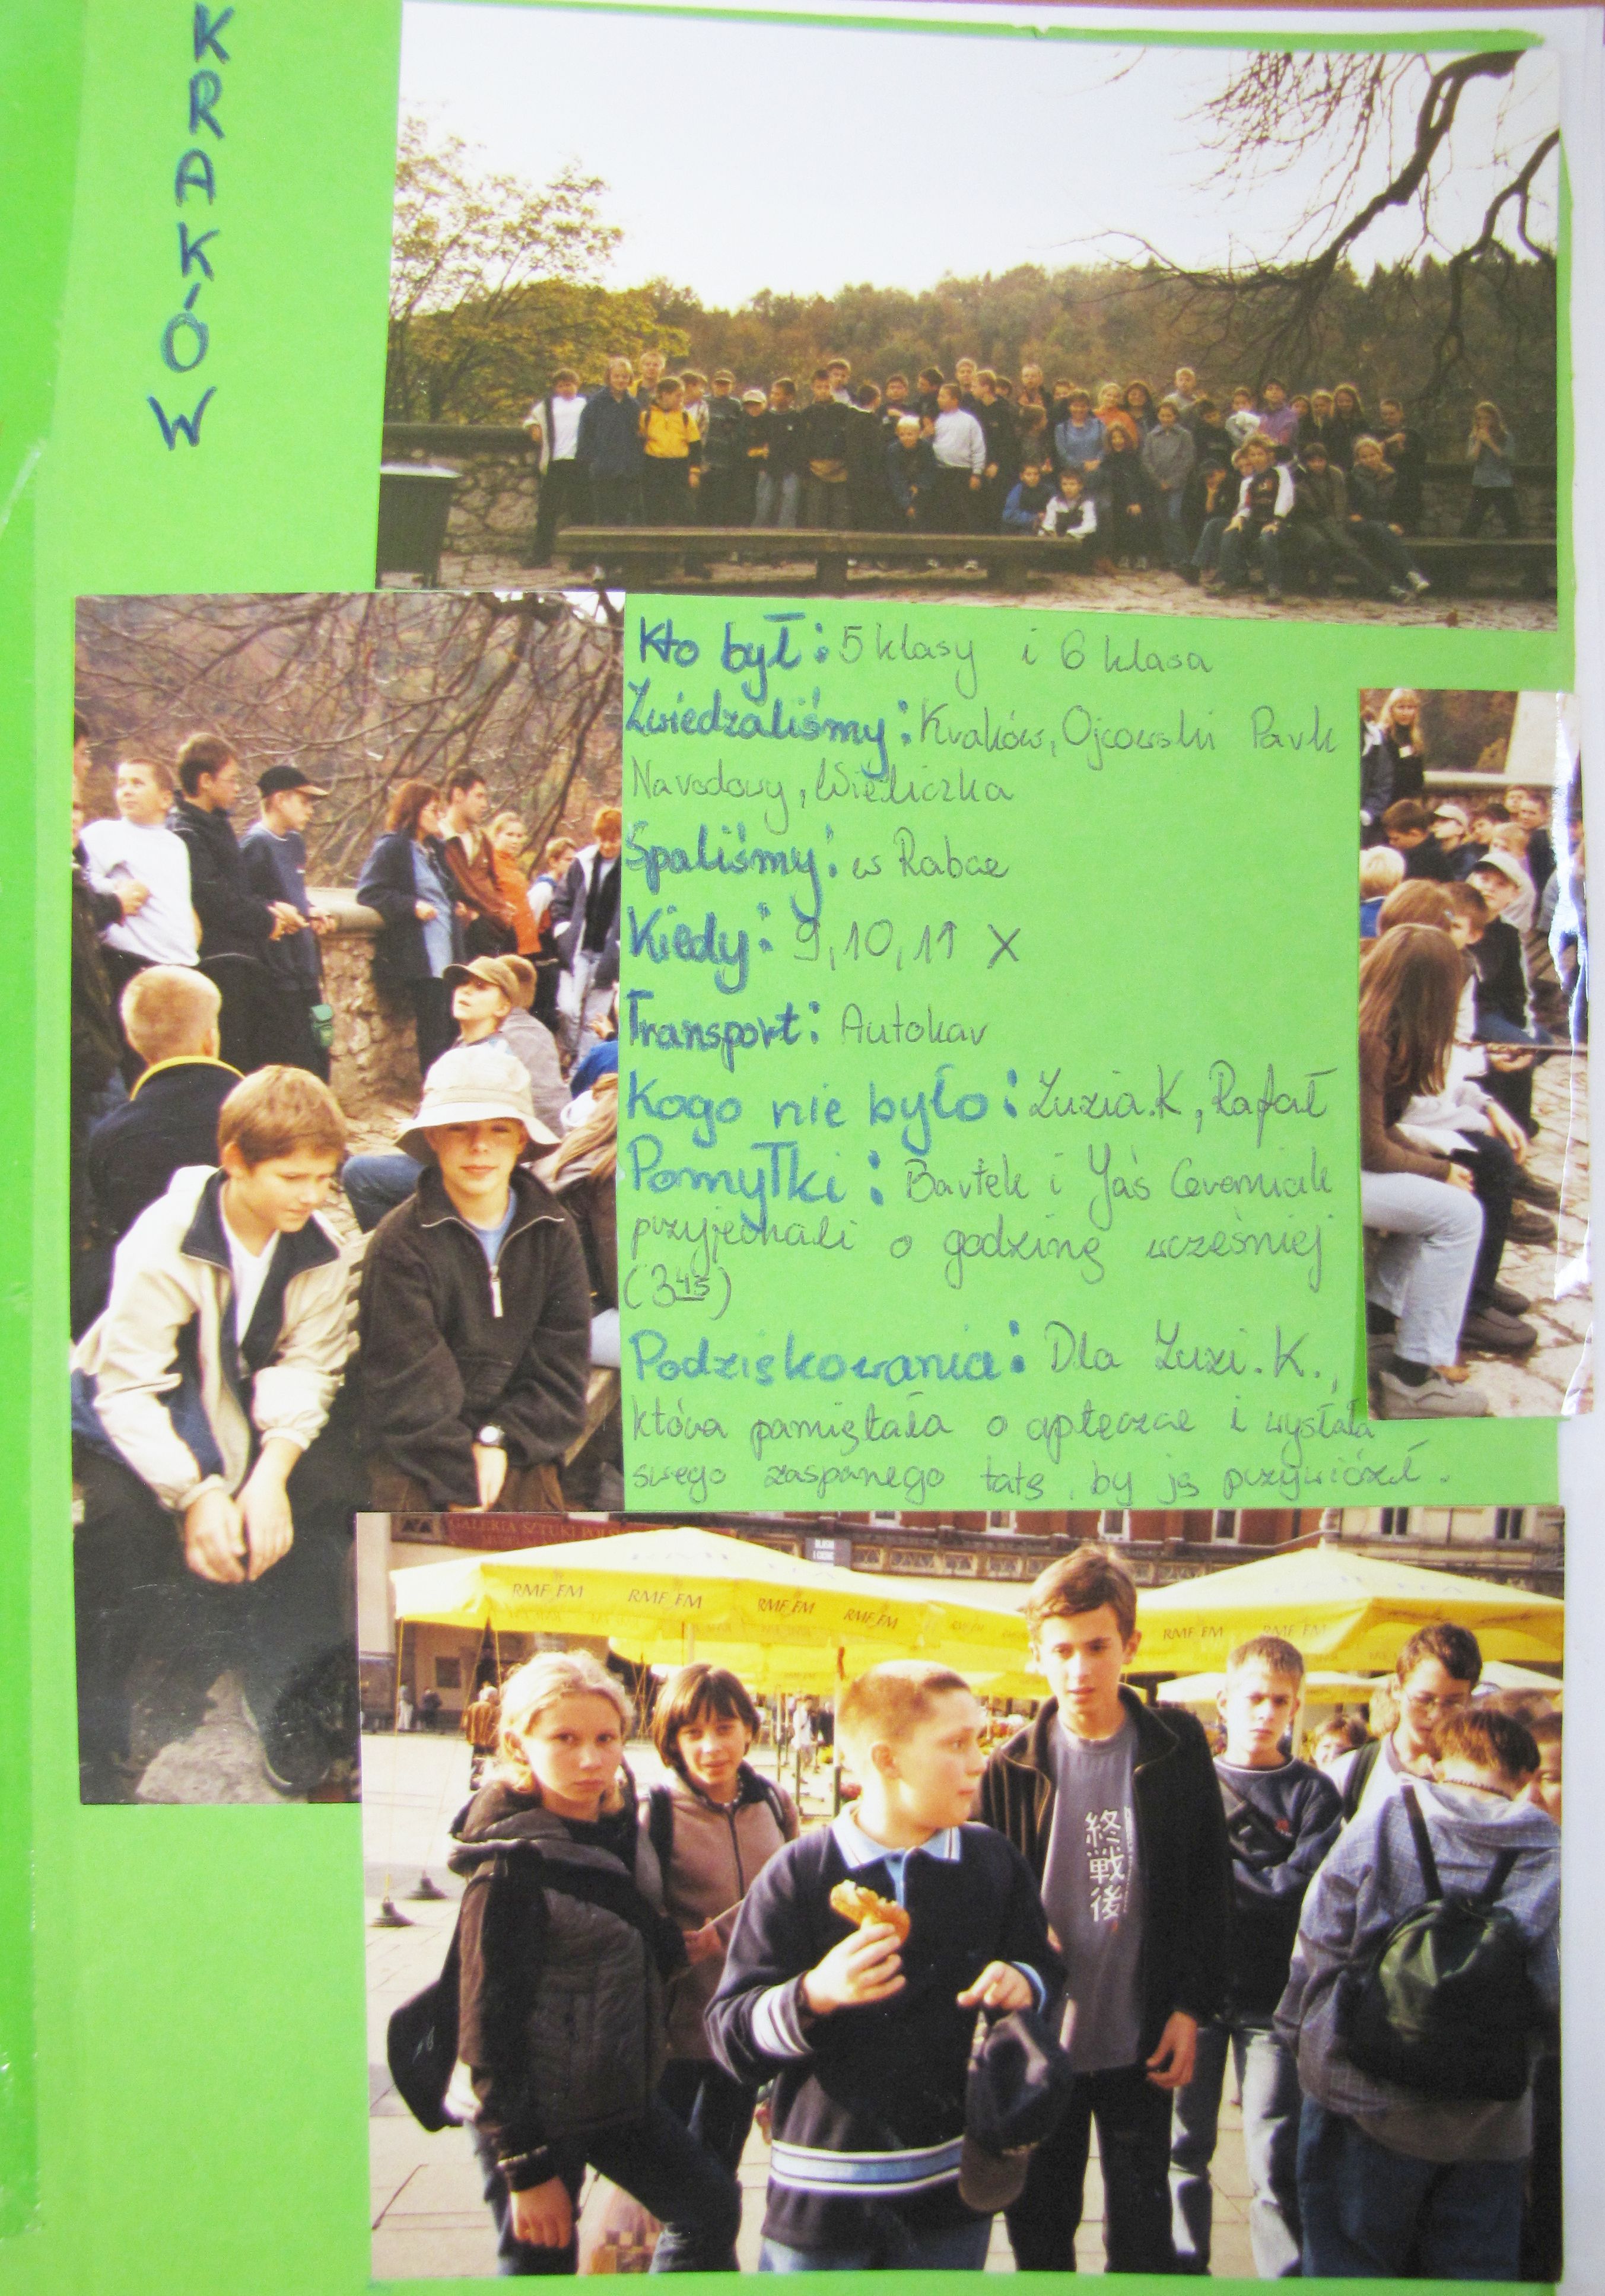 KRAKÓW
Kto był: 5 klasy i 6 klasa
Zwiedzaliśmy: Kraków, Ojcowski Park
Narodowy, Wieliczka
Spaliśmy: w Rabce
Kiedy: 9, 10, 11 X
Transport: Autokar
Kogo nie było: Zuzia.K, Rafał
Pomyłki: Bartek i Jaś Ceramiak
przyjechali o godzinę wcześniej
(3 45)
Podziękowania: Dla Zuzi.K.,
która pamiętała o apteczce i wysłała
swego zaspanego tatę, by ją przywiózł.
GALERIA SZTUKI
RMF FM RMF FM RMF FM RMF FM RMF FM RMF FM
終戦後